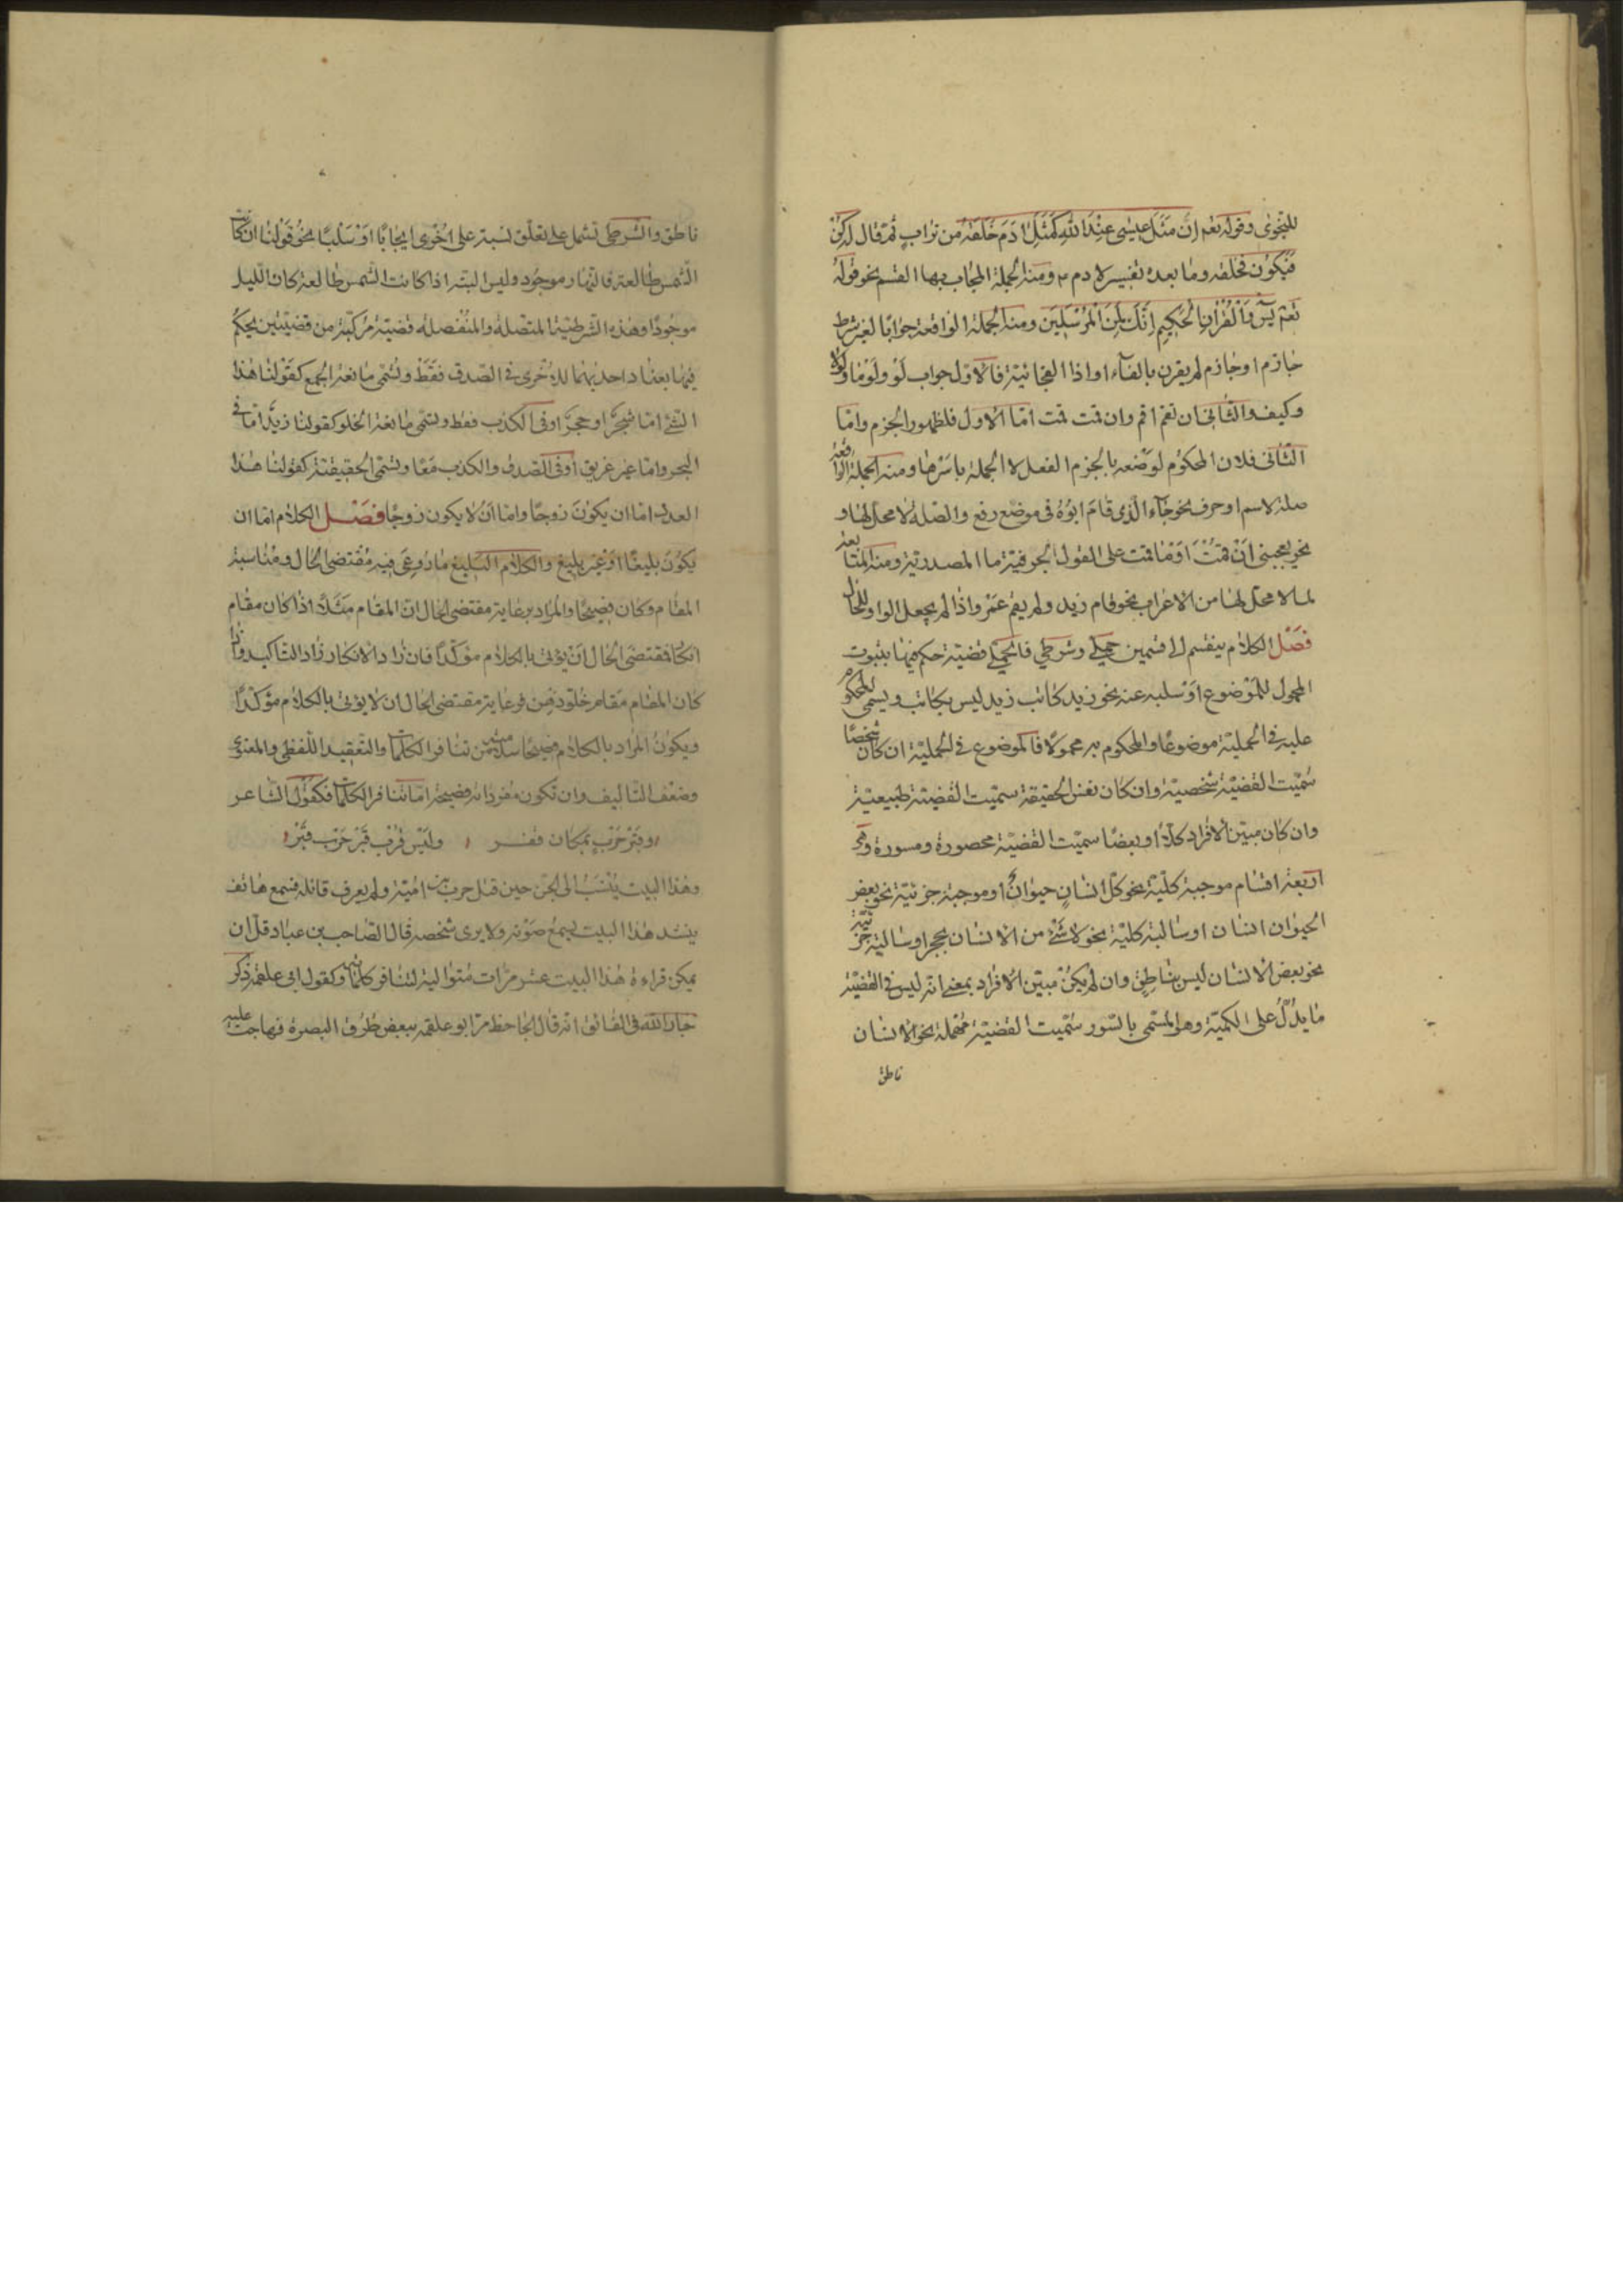 للنجوى وقوله تعم إِنَّ مَثَلَ عِيسٰى عِنْدَ اللهِ كَمَثَلِ اٰدَمَ خَلَقَهُ من تراب ثم قال له كن
فيكون فخلقه وما بعده تفسير لادم ومنه الجملة المجاب بها القسم نحو قوله
تعم يٰسٓ وَالْقُرْاٰنِ الْحَكِيمِ اِنَّكَ لَمِنَ الْمُرْسَلِينَ ومنه الجملة الواقعة جوابا لغير شرط
جازم او جازم لم يقرن بالفاء او اذا الفجائية فالاول جواب لَوْ ولَوْما ولَوْلا
وكيف والثانى ان تقم اقم وان قمت قمت امّا الاول فلظهور الجزم وامّا
الثانى فلان المحكوم لموضعه بالجزم الفعل لا الجملة باسرها ومنه الجملة الواقعة
صلة لاسم او حرف نحو جاء الذى قام ابوه فى موضع رفع والصلة لا محل لها و
نحو يعجبنى ان قمت او ما قمت على القول بحرفيّة ما المصدرية ومنه المتابعة
لما لا محل لها من الاعراب نحو قام زيد ولم يقم عمرو اذا لم يجعل الواو للحال
فصل الكلام ينقسم الى قسمين حملى وشرطى فالحملى قضية حكم فيها بثبوت
المحمول للموضوع او سلبه عنه نحو زيد كاتب زيد ليس بكاتب ويسمى المحكوم
عليه فى الحملية موضوعا والمحكوم به محمولا فالموضوع فى الحملية ان كان شخصا
سمّيت القضيّة شخصيّة وان كان نفس الحقيقة سمّيت القضيّة طبيعيّة
وان كان مبيّن الافراد كلاّ او بعضا سمّيت القضيّة محصورة ومسورة وهى
اربعة اقسام موجبة كليّة نحو كلّ انسان حيوان او موجبة جزئيّة نحو بعض
الحيوان انسان او سالبة كليّة نحو لا شئ من الانسان بحجر او سالبة جزئيّة
نحو بعض الانسان ليس بناطق وان لم يكن مبيّن الافراد بمعنى انه ليس فى القضيّة
ما يدلّ على الكميّة وهو المسمّى بالسّور سمّيت القضيّة مهملة نحو الانسان
ناطق
ناطق والشرطى تشمل على تعلّق نسبة على اخرى ايجابا او سلبا نحو قولنا ان كانت
الشمس طالعة فالنهار موجود وليس البتة اذا كانت الشمس طالعة كان الليل
موجودا وهذه الشرطيّة المتصلة والمنفصلة قضيّة مركّبة من قضيّتين يحكم
فيها بعناد احديهما للاخرى فى الصدق فقط وتسمّى مانعة الجمع كقولنا هذا
الشئ امّا شجر او حجر او فى الكذب فقط وتسمّى مانعة الخلو كقولنا زيد امّا فى
البحر وامّا غير غريق او فى الصدق والكذب معا وتسمّى الحقيقيّة كقولنا هذا
العدد امّا ان يكون زوجا وامّا ان لا يكون زوجا فصل الكلام امّا ان
يكون بليغا او غير بليغ والكلام البليغ ما روعى فيه مقتضى الحال ومناسبة
المقام وكان فصيحا والمراد برعاية مقتضى الحال انّ المقام مثلا اذا كان مقام
انكار فمقتضى الحال ان يؤتى بالكلام مؤكّدا فان زاد الانكار زاد التاكيد وان
كان المقام مقام خلو ذهن فرعاية مقتضى الحال ان لا يؤتى بالكلام مؤكّدا
ويكون المراد بالكلام فصيحا سلامته من تنافر الكلمات والتعقيد اللفظى والمعنوى
وضعف التاليف وان تكون مفرداته فصيحة امّا تنافر الكلمات فكقول الشاعر
وقبر حرب بمكان قفر وليس قرب قبر حرب قبر
وهذا البيت ينسب الى الجن حين قتل حرب بن اميّة ولم يعرف قائله فسمع هاتف
ينشد هذا البيت يسمع صوته ولا يرى شخصه قال الصاحب بن عباد قلّ ان
يمكن قراءة هذا البيت عشر مرّات متوالية لتنافر كلماتها وكقول ابى علقمة ذكر
جار الله فى الفائق انه قال الجاحظ مرّ ابو علقمه ببعض طرق البصرة فهاجت عليه